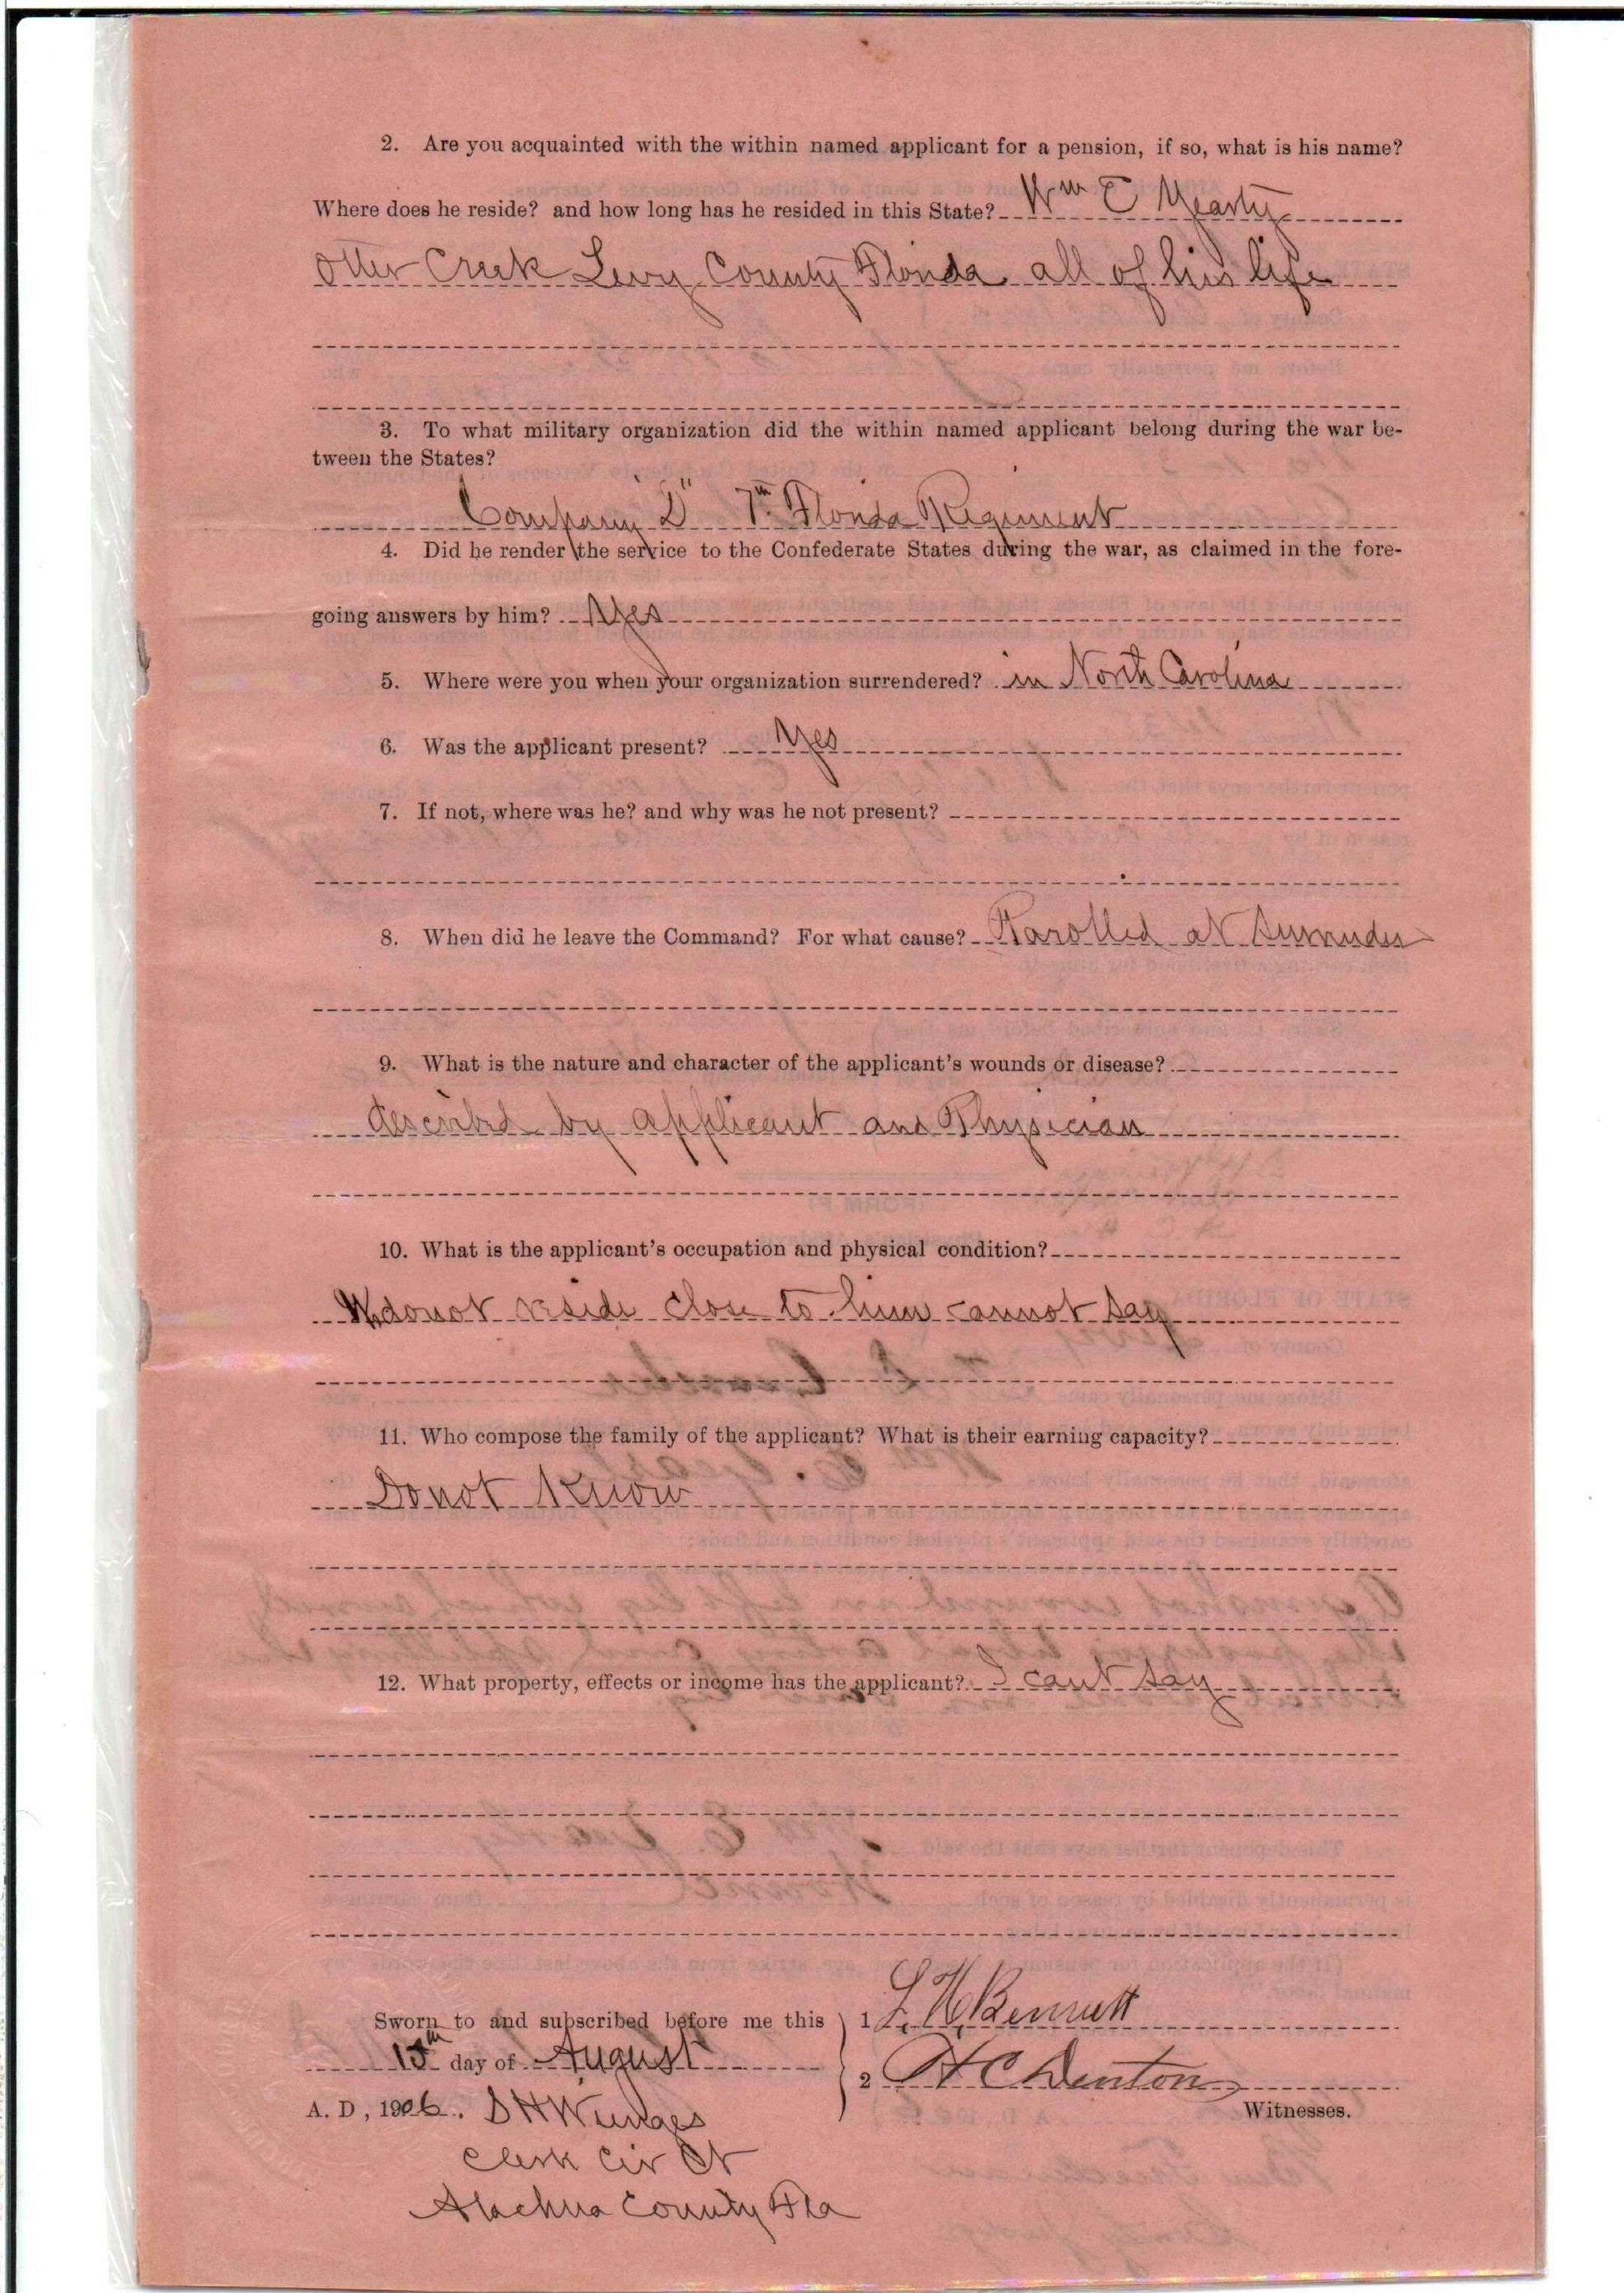 2. Are you acquainted with the within named applicant for a pension, if so, what is his name?
Where does he reside? and how long has he resided in this State? Wm E Yearty
Otter Creek Levy County Florida all of his life
3. To what military organization did the within named applicant belong during the war be-
tween the States?
Company "D" 7th Florida Regiment
4. Did he render the service to the Confederate States during the war, as claimed in the fore-
going answers by him? Yes
5. Where were you when your organization surrendered? in North Carolina
6. Was the applicant present? Yes
7. If not, where was he? and why was he not present?
8. When did he leave the Command? For what cause? Parolled at Surrender
9. What is the nature and character of the applicant's wounds or disease?
described by applicant and Physician
10. What is the applicant's occupation and physical condition?
We do not reside close to him cannot say
11. Who compose the family of the applicant? What is their earning capacity?
Do not Know
12. What property, effects or income has the applicant? I cant say
Sworn to and subscribed before me this 1 L. H. Bennett
15th day of August
2 H C Denton
A. D, 1906. S H Wienges
Witnesses.
Clerk Cir Ct
Alachua County Fla